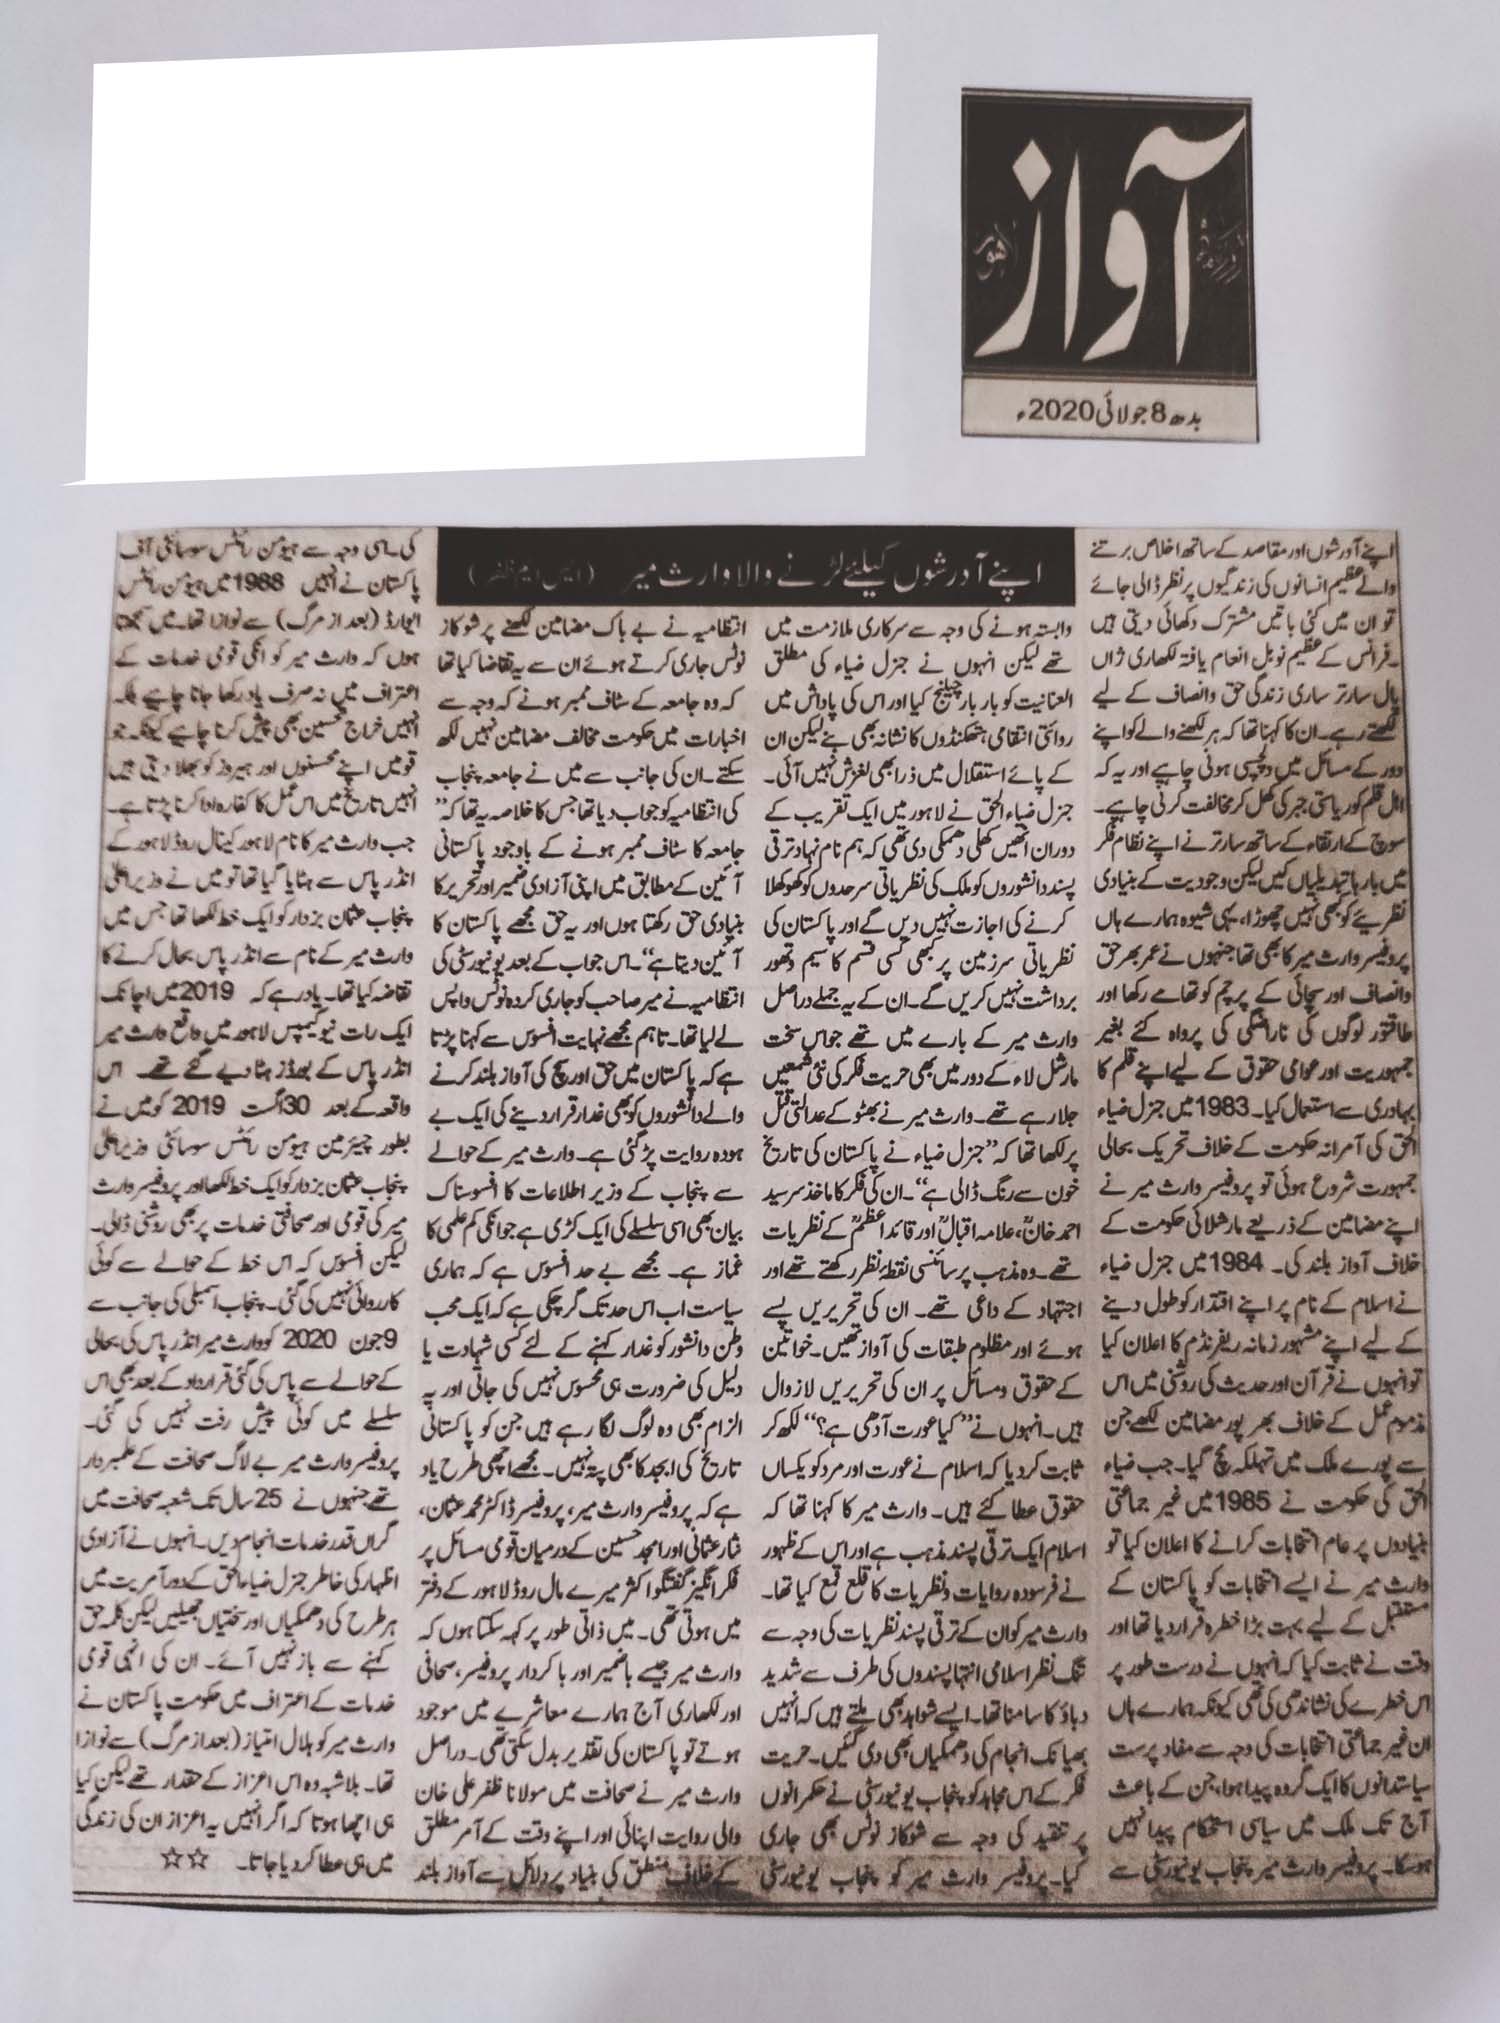 آواز
روزنامہ
لاہور
بدھ 8 جولائی 2020ء
اپنے آدرشوں کیلئے لڑنے والا وارث میر (ایس ایم ظفر)
اپنے آدرشوں اور مقاصد کے ساتھ اخلاص برتنے
والے عظیم انسانوں کی زندگیوں پر نظر ڈالی جائے
تو ان میں کئی باتیں مشترک دکھائی دیتی ہیں
۔فرانس کے عظیم نوبل انعام یافتہ لکھاری ژاں
پال سارتر ساری زندگی حق و انصاف کے لیے
لکھتے رہے۔ ان کا کہنا تھا کہ ہر لکھنے والے کو اپنے
دور کے مسائل میں دلچسپی ہونی چاہیے اور یہ کہ
اہل قلم کو ریاستی جبر کی کھل کر مخالفت کرنی چاہیے۔
سوچ کے ارتقاء کے ساتھ سارتر نے اپنے نظام فکر
میں بارہا تبدیلیاں کیں لیکن وجودیت کے بنیادی
نظریئے کو کبھی نہیں چھوڑا، یہی شیوہ ہمارے ہاں
پروفیسر وارث میر کا بھی تھا جنہوں نے عمر بھر حق
و انصاف اور سچائی کے پرچم کو تھامے رکھا اور
طاقتور لوگوں کی ناراضگی کی پرواہ کئے بغیر
جمہوریت اور عوامی حقوق کے لیے اپنے قلم کا
بہادری سے استعمال کیا۔ 1983 میں جنرل ضیاء
الحق کی آمرانہ حکومت کے خلاف تحریک بحالی
جمہورت شروع ہوئی تو پروفیسر وارث میر نے
اپنے مضامین کے ذریعے مارشلائی حکومت کے
خلاف آواز بلند کی۔ 1984 میں جنرل ضیاء
نے اسلام کے نام پر اپنے اقتدار کو طول دینے
کے لیے اپنے مشہور زمانہ ریفرنڈم کا اعلان کیا
تو انہوں نے قرآن اور حدیث کی روشنی میں اس
مذموم عمل کے خلاف بھر پور مضامین لکھے جن
سے پورے ملک میں تہلکہ مچ گیا۔ جب ضیاء
الحق کی حکومت نے 1985 میں غیر جماعتی
بنیادوں پر عام انتخابات کرانے کا اعلان کیا تو
وارث میر نے ایسے انتخابات کو پاکستان کے
مستقبل کے لیے بہت بڑا خطرہ قرار دیا تھا اور
وقت نے ثابت کیا کہ انہوں نے درست طور پر
اس خطرے کی نشاندھی کی تھی کیونکہ ہمارے ہاں
ان غیر جماعتی انتخابات کی وجہ سے مفاد پرست
سیاستدانوں کا ایک گروہ پیدا ہوا، جن کے باعث
آج تک ملک میں سیاسی استحکام پیدا نہیں
ہوسکا۔ پروفیسر وارث میر پنجاب یونیورسٹی سے
وابستہ ہونے کی وجہ سے سرکاری ملازمت میں
تھے لیکن انہوں نے جنرل ضیاء کی مطلق
العنانیت کو بار بار چیلنج کیا اور اس کی پاداش میں
روائتی انتقامی ہتھکنڈوں کا نشانہ بھی بنے لیکن ان
کے پائے استقلال میں ذرا بھی لغزش نہیں آئی۔
جنرل ضیاء الحق نے لاہور میں ایک تقریب کے
دوران انھیں کھلی دھمکی دی تھی کہ ہم نام نہاد ترقی
پسند دانشوروں کو ملک کی نظریاتی سرحدوں کو کھوکھلا
کرنے کی اجازت نہیں دیں گے اور پاکستان کی
نظریاتی سرزمین پر کبھی کسی قسم کا سیم و تھور
برداشت نہیں کریں گے۔ ان کے یہ جملے دراصل
وارث میر کے بارے میں تھے جو اس سخت
مارشل لاء کے دور میں بھی حریت فکر کی نئی شمعیں
جلا رہے تھے۔ وارث میر نے بھٹو کے عدالتی قتل
پر لکھا تھا کہ ”جنرل ضیاء نے پاکستان کی تاریخ
خون سے رنگ ڈالی ہے“۔ ان کی فکر کا ماخذ سرسید
احمد خانؒ، علامہ اقبالؒ اور قائد اعظمؒ کے نظریات
تھے۔ وہ مذہب پر سائنسی نقطۂ نظر رکھتے تھے اور
اجتہاد کے داعی تھے۔ ان کی تحریریں پسے
ہوئے اور مظلوم طبقات کی آواز تھیں۔ خواتین
کے حقوق و مسائل پر ان کی تحریریں لازوال
ہیں۔ انہوں نے ”کیا عورت آدھی ہے؟“ لکھ کر
ثابت کردیا کہ اسلام نے عورت اور مرد کو یکساں
حقوق عطا کئے ہیں۔ وارث میر کا کہنا تھا کہ
اسلام ایک ترقی پسند مذہب ہے اور اس کے ظہور
نے فرسودہ روایات و نظریات کا قلع قمع کیا تھا۔
وارث میر کو ان کے ترقی پسند نظریات کی وجہ سے
تنگ نظر اسلامی انتہا پسندوں کی طرف سے شدید
دباؤ کا سامنا تھا۔ ایسے شواہد بھی ملتے ہیں کہ انہیں
بھیانک انجام کی دھمکیاں بھی دی گئیں۔ حریت
فکر کے اس مجاہد کو پنجاب یونیورسٹی نے حکمرانوں
پر تنقید کی وجہ سے شوکاز نوٹس بھی جاری
کیا۔ پروفیسر وارث میر کو پنجاب یونیورسٹی
انتظامیہ نے بے باک مضامین لکھنے پر شوکاز
نوٹس جاری کرتے ہوئے ان سے یہ تقاضا کیا تھا
کہ وہ جامعہ کے سٹاف ممبر ہونے کہ وجہ سے
اخبارات میں حکومت مخالف مضامین نہیں لکھ
سکتے۔ ان کی جانب سے میں نے جامعہ پنجاب
کی انتظامیہ کو جواب دیا تھا جس کا خلاصہ یہ تھا کہ ”
جامعہ کا سٹاف ممبر ہونے کے باوجود پاکستانی
آئین کے مطابق میں اپنی آزادی ضمیر اور تحریر کا
بنیادی حق رکھتا ہوں اور یہ حق مجھے پاکستان کا
آئین دیتا ہے“۔ اس جواب کے بعد یونیورسٹی کی
انتظامیہ نے میر صاحب کو جاری کردہ نوٹس واپس
لے لیا تھا۔ تاہم مجھے نہایت افسوس سے کہنا پڑتا
ہے کہ پاکستان میں حق اور سچ کی آواز بلند کرنے
والے دانشوروں کو بھی غدار قرار دینے کی ایک بے
ہودہ روایت پڑ گئی ہے۔ وارث میر کے حوالے
سے پنجاب کے وزیر اطلاعات کا افسوسناک
بیان بھی اسی سلسلے کی ایک کڑی ہے جو انکی کم علمی کا
غماز ہے۔ مجھے بے حد افسوس ہے کہ ہماری
سیاست اب اس حد تک گر چکی ہے کہ ایک محب
وطن دانشور کو غدار کہنے کے لئے کسی شہادت یا
دلیل کی ضرورت ہی محسوس نہیں کی جاتی اور یہ
الزام بھی وہ لوگ لگا رہے ہیں جن کو پاکستانی
تاریخ کی ابجد کا بھی پتہ نہیں۔ مجھے اچھی طرح یاد
ہے کہ پروفیسر وارث میر، پروفیسر ڈاکٹر محمد عثمان،
نثار عثمانی اور امجد حسین کے درمیان قومی مسائل پر
فکر انگیز گفتگو اکثر میرے مال روڈ لاہور کے دفتر
میں ہوتی تھی۔ میں ذاتی طور پر کہہ سکتا ہوں کہ
وارث میر جیسے باضمیر اور با کردار پروفیسر، صحافی
اور لکھاری آج ہمارے معاشرے میں موجود
ہوتے تو پاکستان کی تقدیر بدل سکتی تھی۔ دراصل
وارث میر نے صحافت میں مولانا ظفر علی خان
والی روایت اپنائی اور اپنے وقت کے آمر مطلق
کے خلاف منطق کی بنیاد پر دلائل سے آواز بلند
کی۔ اسی وجہ سے ہیومن رائٹس سوسائٹی آف
پاکستان نے انہیں 1988 میں ہیومن رائٹس
ایوارڈ (بعد از مرگ) سے نوازا تھا۔ میں سمجھتا
ہوں کہ وارث میر کو انکی قومی خدمات کے
اعتراف میں نہ صرف یاد رکھا جانا چاہیے بلکہ
انہیں خراج تحسین بھی پیش کرنا چاہیے کیونکہ جو
قومیں اپنے محسنوں اور ہیروز کو بھلا دیتی ہیں
انہیں تاریخ میں اس عمل کا کفارہ ادا کرنا پڑتا ہے۔
جب وارث میر کا نام لاہور کینال روڈ لاہور کے
انڈر پاس سے ہٹایا گیا تھا تو میں نے وزیر اعلیٰ
پنجاب عثمان بزدار کو ایک خط لکھا تھا جس میں
وارث میر کے نام سے انڈر پاس بحال کرنے کا
تقاضہ کیا تھا۔ یاد رہے کہ 2019 میں اچانک
ایک رات نیو کیمپس لاہور میں واقع وارث میر
انڈر پاس کے بورڈز ہٹا دیے گئے تھے۔ اس
واقعہ کے بعد 30 اگست 2019 کو میں نے
بطور چیئرمین ہیومن رائٹس سوسائٹی وزیر اعلیٰ
پنجاب عثمان بزدار کو ایک خط لکھا اور پروفیسر وارث
میر کی قومی اور صحافتی خدمات پر بھی روشنی ڈالی۔
لیکن افسوس کہ اس خط کے حوالے سے کوئی
کارروائی نہیں کی گئی۔ پنجاب اسمبلی کی جانب سے
9 جون 2020 کو وارث میر انڈر پاس کی بحالی
کے حوالے سے پاس کی گئی قرارداد کے بعد بھی اس
سلسلے میں کوئی پیش رفت نہیں کی گئی۔
پروفیسر وارث میر بے لاگ صحافت کے علمبردار
تھے جنہوں نے 25 سال تک شعبہ صحافت میں
گراں قدر خدمات انجام دیں۔ انہوں نے آزادی
اظہار کی خاطر جنرل ضیاء الحق کے دور آمریت میں
ہر طرح کی دھمکیاں اور سختیاں جھیلیں لیکن کلمہ حق
کہنے سے باز نہیں آئے۔ ان کی انہی قومی
خدمات کے اعتراف میں حکومت پاکستان نے
وارث میر کو ہلال امتیاز (بعد از مرگ) سے نوازا
تھا۔ بلاشبہ وہ اس اعزاز کے حقدار تھے لیکن کیا
ہی اچھا ہوتا کہ اگر انہیں یہ اعزاز ان کی زندگی
میں ہی عطا کر دیا جاتا۔ ☆☆